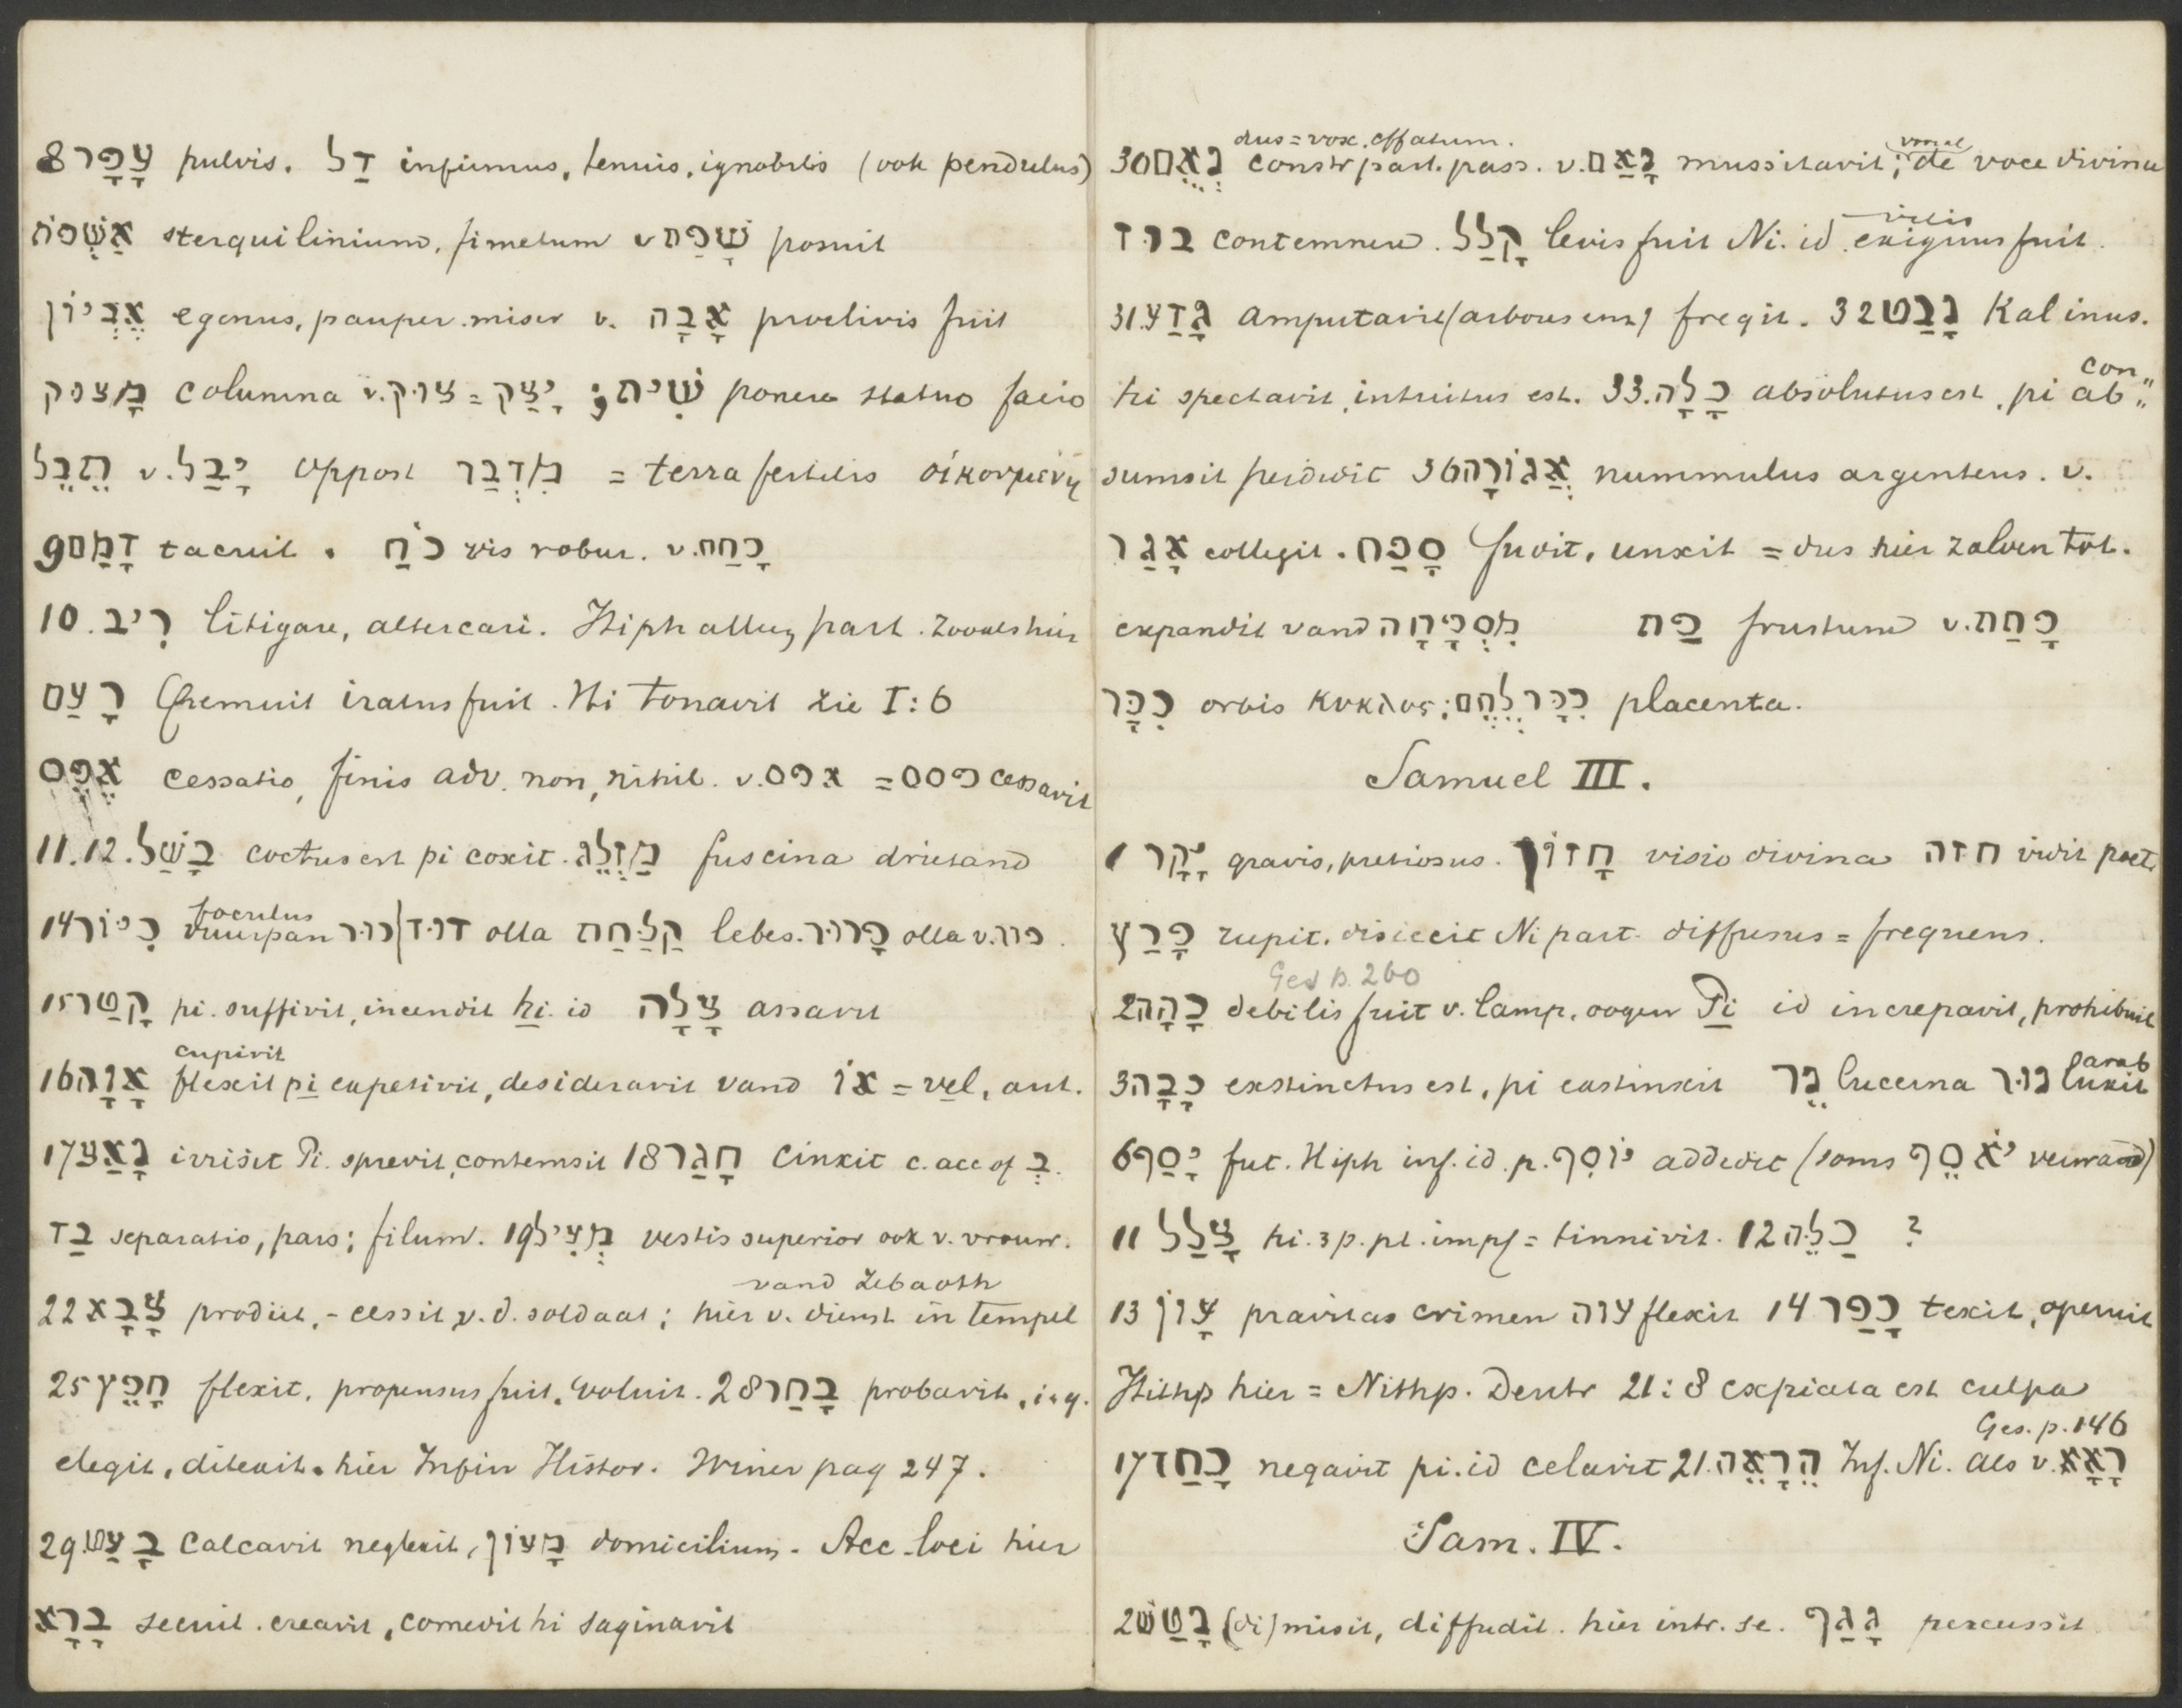 8 עָפָר pulvis. דַל infirmus, tenuis, ignobilis (ook pendulus)
אַשְׁפֹּת sterquilinium, fimetum v שָׁפַת posuit
אֶבְיוֹן egenus, pauper. miser v. אָבָה proclivis fuit
מָצוּק columna v. צוּק = יָצַק ; שִׁית ponere statuo facio
תֵבֵל v. יָבַל oppost מִדְבַר = terra fertilis οἰκουμένη
9 דָמַם tacuit. כֹּחַ vis robur. v. כָחַח
10. רִיב litigare, altercari. Hiph part. zooals hier
רָעַם fremuit iratus fuit. Hi tonavit zie I:6
אֶפֶס cessatio, finis adv. non, nihil. v. אפס = פסס cessavit
11.12. בָשַׁל coctus est pi coxit. מַזְלֵג fuscina drietand
foculus
14 כִיּוֹר vuurpan כור | דוּד olla קַלַּחַת lebes. פָרוּר olla v. פור.
15 קָטַר pi. suffivit, incendit hi. id צָלָה assavit
cupivit
16 אָוָה flexit pi expetivit, desideravit vand אוֹ = vel, aut.
17 נָאַץ irrisit Pi. sprevit, contemsit 18 חָגַר cinxit c. acc of בְּ.
בַד separatio, pars; filum. 19 מְעִיל vestis superior ook v. vrouw.
vand Zebaoth
22 צָבָא prodiit, - cessit v. d. soldaat; hier v. dienst in tempel
25 חָפֵץ flexit, propensus fuit. voluit. 28 בָחַר probavit, i.q.
elegit, dilexit. hier Infin Histor. Winer pag 247.
29. בָעַט calcavit neglexit, מָעוֹן domicilium. Acc. loci hier
בָרָא secuit. creavit, comedit hi saginavit
dus = vox, effatum.
30 נְאֻם constr part. pass. v. נָאַם mussitavit; de voce divina
vilis
בוּז contemnere. קָלַל levis fuit Ni. id. exiguus fuit.
31. גָדַע amputavit (arborem) fregit. 32 נָבַט Kal inus.
con
ti spectavit, intuitus est. 33. כָלָה absolutus est, pi ab „
sumsit perdidit 36 אֲגוֹרָה nummulus argenteus. v.
אָגַר collegit. סָפַח fudit, unxit = dus hier zalven tot.
expandit vand מִסְפָּחָה פַת frustum v. פָתַת
כִכָּר orbis κυκλος; כִכָּר לֶחֶם placenta.
Samuel III.
1 יָקָר gravis, pretiosus. חָזוֹן visio divina חזה vidit poet.
פָרַץ rupit. disiecit Ni part. diffusus = frequens.
Ges p. 260
2 כָהָה debilis fuit v. lamp, oogen Pi id increpavit, prohibuit
arab
3 כָבָה exstinctus est, pi exstinxit נֵר lucerna נור luxit
6 יָסַף fut. Hiph inf. id. p. יוֹסִף addedit (soms יֹאסֵף verward)
11 צָלַל hi. 3 p. pl. impf = tinnivit. 12 כַלֵּה ?
13 עָוֹן pravitas crimen עוה flexit 14 כָפַר texit, operuit
Hithp hier = Nithp. Deutr 21:8 expiata est culpa
Ges. p. 146
17 כָחַד negavit pi. id celavit 21. הֵרָאֵה Inf. Ni. als v. רָאָא
Sam. IV.
2 נָטַשׁ (di)misit, diffudit. hier intr. se. נָגַף percussit